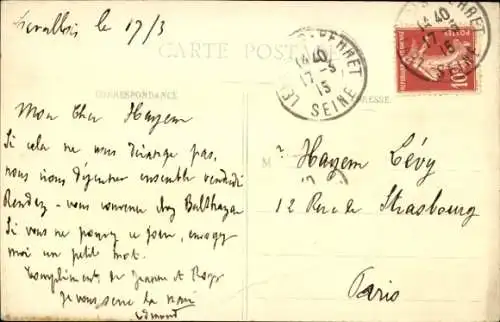 Levallois le 17/3
CARTE POSTALE
LEVALLOIS-PERRET
14 40
17 -3
15
SEINE
14 40
17 -3
15
SEINE
POSTES
10
CORRESPONDANCE
ADRESSE
Mon Cher Hayem
Si cela ne vous dérange pas,
nous irons déjeuner ensemble vendredi
Rendez-vous convenu chez Balthazar
Si vous ne pouvez ce jour, envoyez
moi un petit mot.
Compliments de Jeanne et
Je vous serre la main
Edmond
M
Hayem Lévy
12 Rue de Strasbourg
Paris